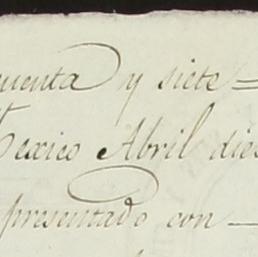 cuenta y siete =
Mexico Abril dies
presentado con —